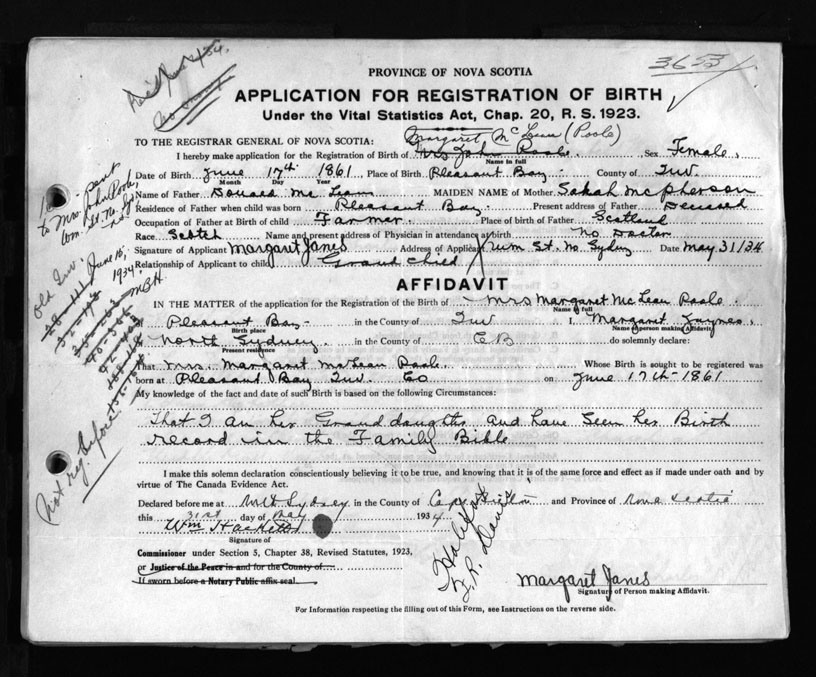 PROVINCE OF NOVA SCOTIA
3653
APPLICATION FOR REGISTRATION OF BIRTH
Under the Vital Statistics Act, Chap. 20, R. S. 1923.
TO THE REGISTRAR GENERAL OF NOVA SCOTIA:
Margaret McLean (Poole)
I hereby make application for the Registration of Birth of Mrs John Poole. Sex Female.
Name in full
Date of Birth June 17th 1861 Place of Birth Pleasant Bay County of Inv.
Month Day Year
Name of Father Donald McLean MAIDEN NAME of Mother Sarah McPherson
Residence of Father when child was born Pleasant Bay Present address of Father Deceased
Occupation of Father at Birth of child Farmer Place of birth of Father Scotland
Race Scotch Name and present address of Physician in attendance at birth No Doctor
Signature of Applicant Margaret Janes Address of Applicant St. No Sydney Date May 31/34
Relationship of Applicant to child Grand Child
AFFIDAVIT
IN THE MATTER of the application for the Registration of the Birth of Mrs Margaret McLean Poole
Name in full
of Pleasant Bay in the County of Inv I, Margaret Jaynes
Birth place Name of person making Affidavit
North Sydney in the County of C B do solemnly declare:
Present residence
That Mrs. Margaret McLean Poole Whose Birth is sought to be registered was
born at Pleasant Bay Inv. Co on June 17th-1861
My knowledge of the fact and date of such Birth is based on the following Circumstances:
That I am her Grand daughter and have Seen her Birth
record in the Family Bible
I make this solemn declaration conscientiously believing it to be true, and knowing that it is of the same force and effect as if made under oath and by
virtue of The Canada Evidence Act.
Declared before me at Nth Sydney in the County of Cape Breton and Province of Nova Scotia
this 31st day of May 1934
Wm Hackett
Signature of
Commissioner under Section 5, Chapter 38, Revised Statutes, 1923,
or Justice of the Peace in and for the County of
If sworn before a Notary Public affix seal
Margaret Janes
Signature of Person making Affidavit.
For Information respecting the filling out of this Form, see Instructions on the reverse side.
to Mrs. John Poole,
June 15,
1934
MBH
Old Inv:
Not reg. before
Halifax